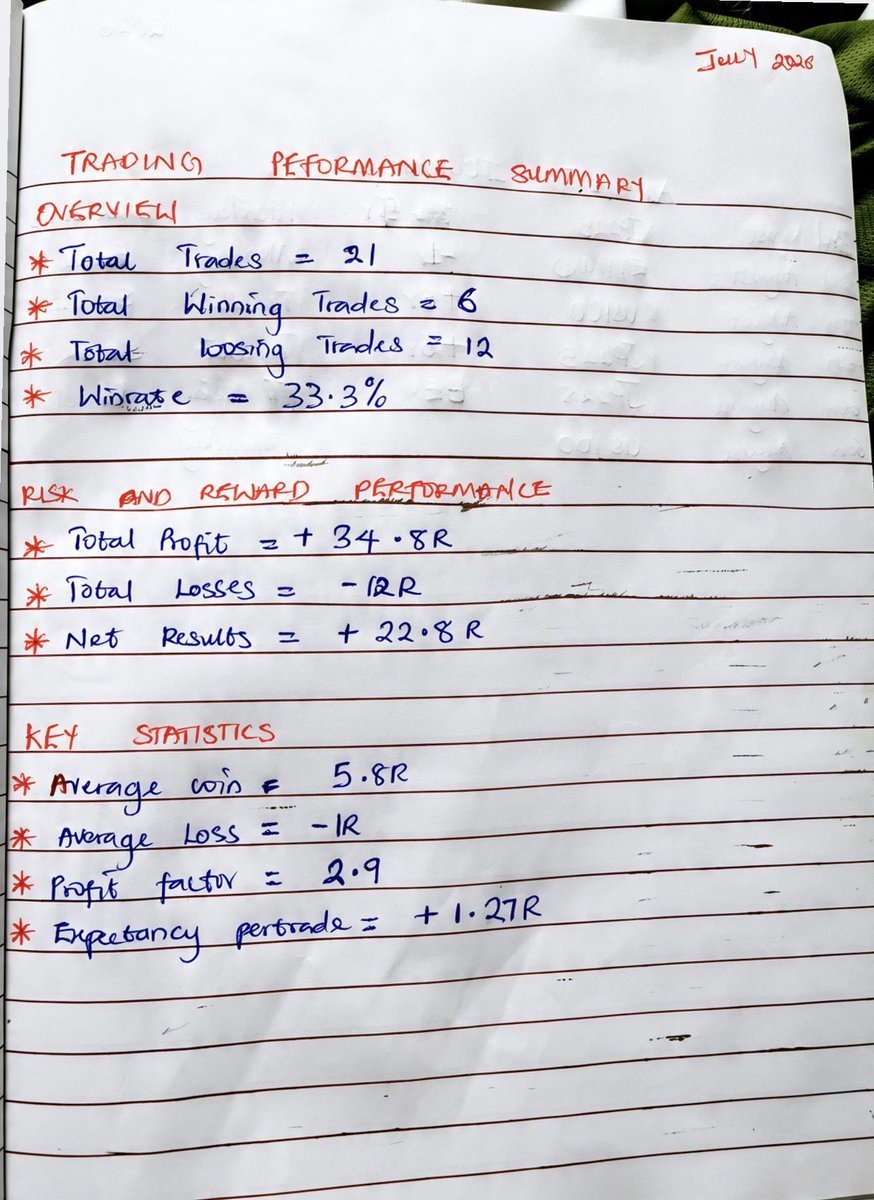 JULLY 2026
TRADING PEFORMANCE SUMMARY
OVERVIEW
* Total Trades = 21
* Total Winning Trades = 6
* Total loosing Trades = 12
* Winrate = 33.3%
RISK AND REWARD PERFORMANCE
* Total Profit = + 34.8R
* Total Losses = -12R
* Net Results = + 22.8R
KEY STATISTICS
* Average win = 5.8R
* Average Loss = -1R
* Profit factor = 2.9
* Expectancy pertrade = + 1.27R